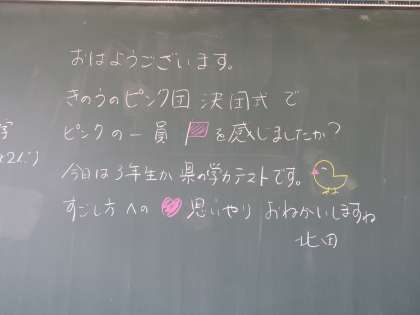 おはようございます。
きのうのピンク団 決団式 で
ピンクの一員 を感じましたか?
今日は3年生が 県の学力テストです。
すごし方 への 思いやり おねがいしますね
北田